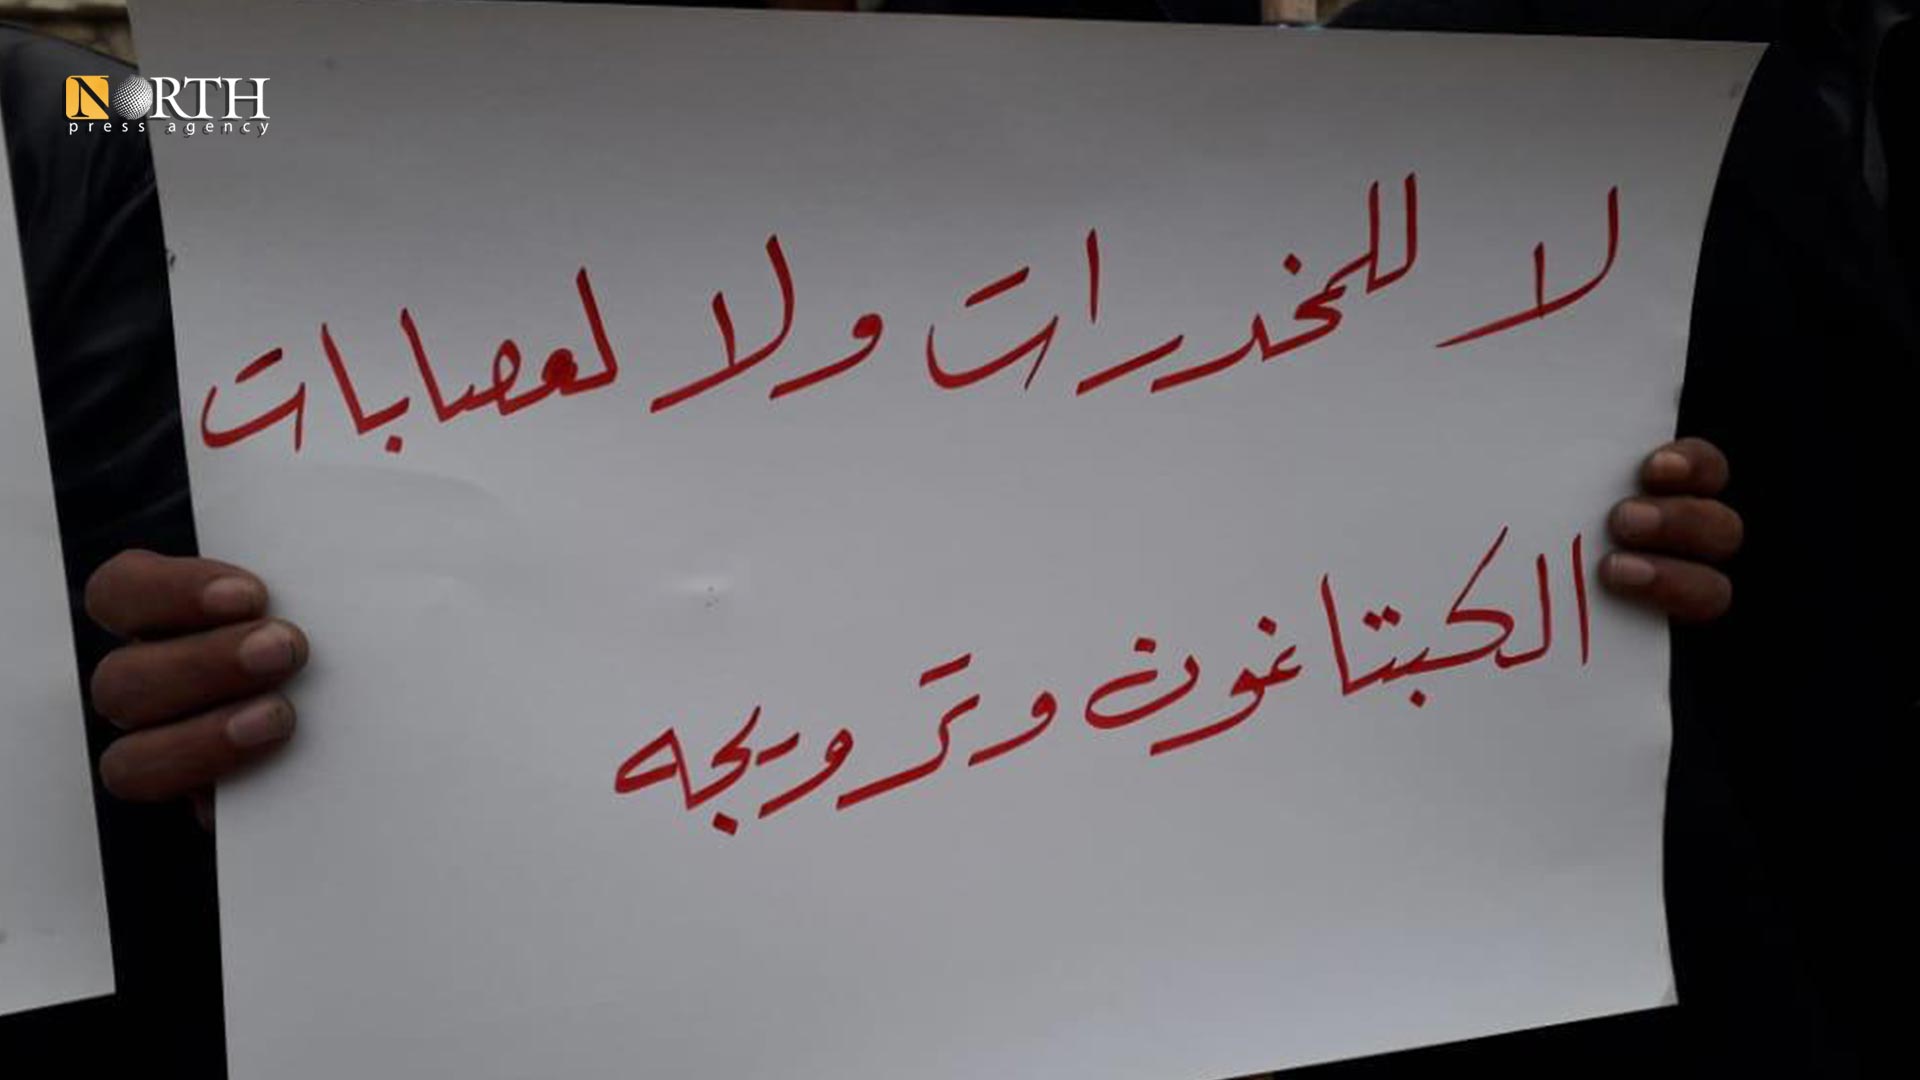 NORTH
press agency
لا للمخدرات ولا لعصابات
الكبتاغون وترويجه